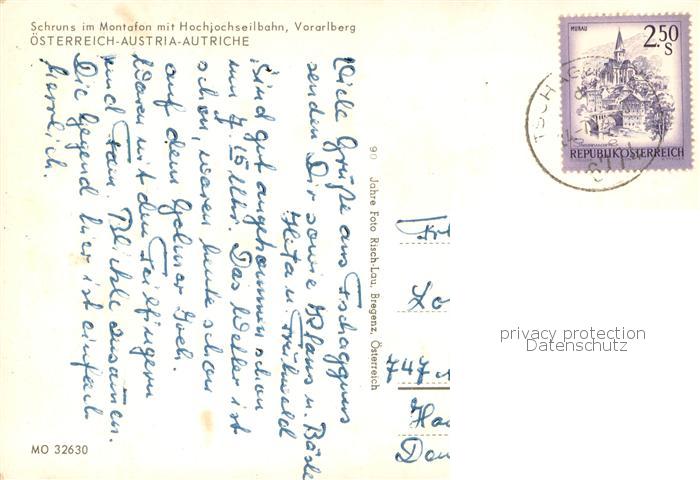 Schruns im Montafon mit Hochjochseilbahn, Vorarlberg
ÖSTERREICH-AUSTRIA-AUTRICHE
Viele Grüße aus Tschagguns
senden Dir sowie Klaus u. Bärbel
Herta u. Frühwald
Sind gut angekommen schon
um 7.15 Uhr. Das Wetter ist
schön, waren heute schon
auf dem Golmer Joch.
Waren mit den Teilfingern
und Fam. zusammen.
Die Gegend hier ist einfach
herrlich.
MO 32630
90 Jahre Foto Risch-Lau, Bregenz, Österreich
MURAU
2.50
S
REPUBLIK ÖSTERREICH
747
privacy protection
Datenschutz